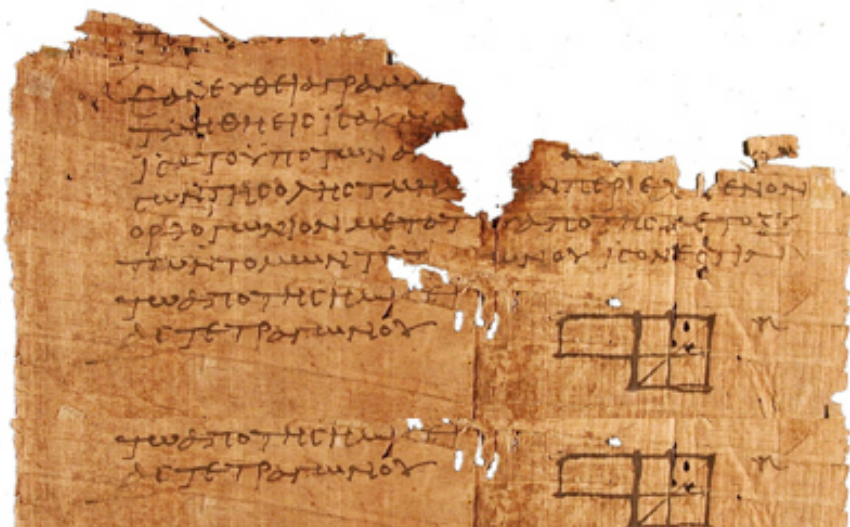 ΕΑΝΕΥΘΕΙΑΓΡΑΜΜ
ΤΜΗΘΗΕΙϹΙϹΑΚΑΙΑ
ΙϹΑΤΟΥΠΟΤΩΝΑ
ϹΩΝΤΗϹΟΛΗϹΤΜΗΜ ΩΝΠΕΡΙΕΧ ΜΕΝΟΝ
ΟΡΘΟΓΩΝΙΟΝΜΕΤΟΤ ΥΑΠΟΤΗϹΜΕΤΟΞΥ
ΤΩΝΤΟΜΩΝΤΕΤ ΩΝΟΥ ΙϹΟΝΕϹΤΙΝ
ΤΩΑΠΟΤΗϹΗΜΙ
ΑϹΤΕΤΡΑΓΩΝΟΥ
ΤΩΑΠΟΤΗϹΗΜΙ
ΑϹΤΕΤΡΑΓΩΝΟΥ